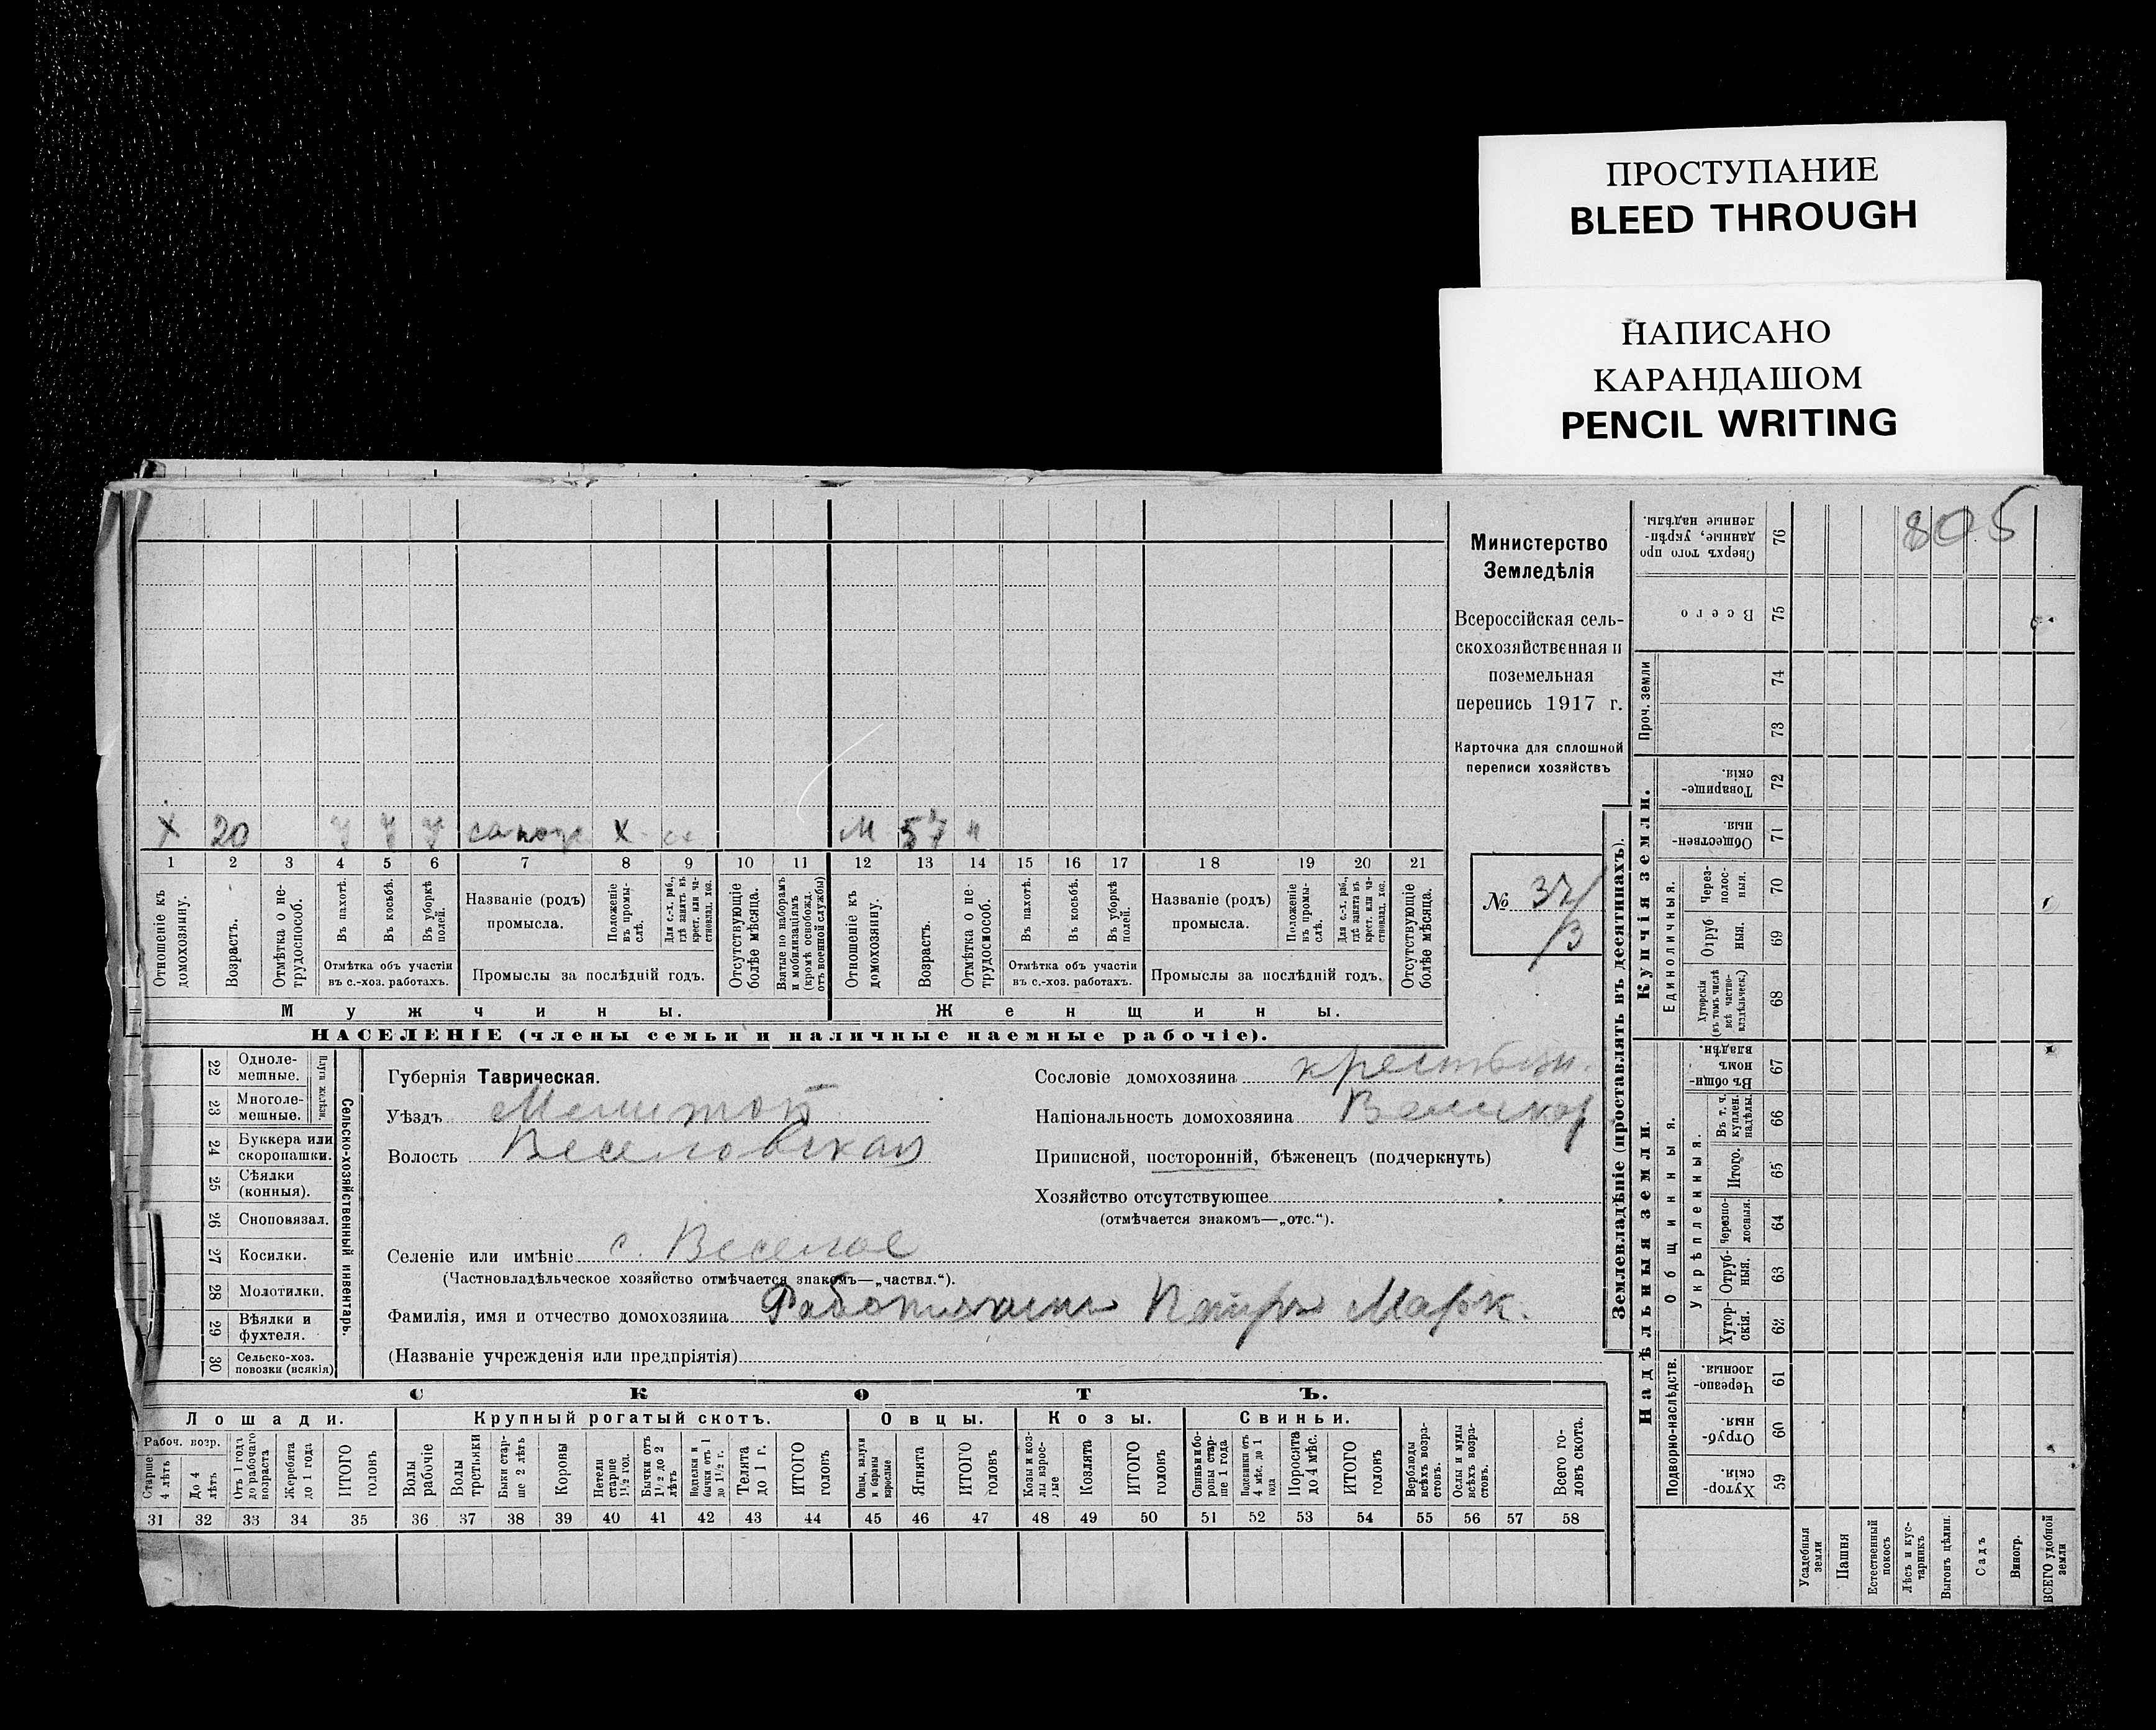 ПРОСТУПАНИЕ
BLEED THROUGH
НАПИСАНО
КАРАНДАШОМ
PENCIL WRITING
805
Министерство
Земледѣлія
Всероссійская сель-
скохозяйственная и
поземельная
перепись 1917 г.
Карточка для сплошной
переписи хозяйствъ
№ 37/
/3
Х 20 сапож Х М 57 н
1 2 3 4 5 6 7 8 9 10 11 12 13 14 15 16 17 18 19 20 21
Отношеніе къ домохозяину.
Возрастъ.
Отмѣтка о не-трудоспособ.
Въ пахотѣ.
Въ косьбѣ.
Въ уборкѣ полей.
Отмѣтка объ участіи
въ с.-хоз. работахъ.
Названіе (родъ)
промысла.
Положеніе въ промы-слѣ.
Для с.-х. раб., гдѣ занятъ въ крест. или ча-стновлад. хоз.
Промыслы за послѣдній годъ.
Отсутствующіе болѣе мѣсяца.
Взятые по наборамъ и мобилизаціямъ (кромѣ освобожд. отъ военной службы)
Отношеніе къ домохозяину.
Возрастъ.
Отмѣтка о не-трудоспособ.
Въ пахотѣ.
Въ косьбѣ.
Въ уборкѣ полей.
Отмѣтка объ участіи
въ с.-хоз. работахъ.
Названіе (родъ)
промысла.
Положеніе въ промы-слѣ.
Для с.-х. раб., гдѣ занята въ крест. или ча-стновлад. хоз.
Промыслы за послѣдній годъ.
Отсутствующіе болѣе мѣсяца.
Мужчины. Женщины.
НАСЕЛЕНІЕ (члены семьи и наличные наемные рабочіе).
22 Одноле-мешные.
23 Многоле-мешные.
Плуги желѣзн.
24 Буккера или скоропашки.
25 Сѣялки (конныя).
26 Сноповязал.
27 Косилки.
28 Молотилки.
29 Вѣялки и фухтеля.
30 Сельско-хоз. повозки (всякія)
Сельско-хозяйственный инвентарь.
Губернія Таврическая.
Уѣздъ Мелитоп
Волость Веселовская
Селеніе или имѣніе с. Веселое
(Частновладѣльческое хозяйство отмѣчается знакомъ—„частвл.“).
Фамилія, имя и отчество домохозяина Петръ Марк.
(Названіе учрежденія или предпріятія)
Сословіе домохозяина крестьян.
Національность домохозяина Великор
Приписной, посторонній, бѣженецъ (подчеркнуть)
Хозяйство отсутствующее
(отмѣчается знакомъ—„отс.“).
СКОТЪ.
Лошади. Крупный рогатый скотъ. Овцы. Козы. Свиньи.
Рабоч. возр.
Старше 4 лѣтъ
До 4 лѣтъ
Отъ 1 года до рабочаго возраста
Жеребята до 1 года
ИТОГО головъ
Волы рабочіе
Волы третьяки
Быки стар-ше 2 лѣтъ
Коровы
Нетели старше 1½ год.
Бычки отъ 1½ до 2 лѣтъ
Подтелки и бычки отъ 1 до 1½ г.
Телята до 1 г.
ИТОГО головъ
Овцы, валухи и бараны взрослые
Ягнята
ИТОГО головъ
Козы и коз-лы взрос-лые
Козлята
ИТОГО головъ
Свиньи и бо-ровы стар-ше 1 года
Подсвинки отъ 4 мѣс. до 1 года
Поросята до 4 мѣс.
ИТОГО головъ
Верблюды всѣхъ возра-стовъ.
Ослы и мулы всѣхъ возра-стовъ.
Всего го-ловъ скота.
31 32 33 34 35 36 37 38 39 40 41 42 43 44 45 46 47 48 49 50 51 52 53 54 55 56 57 58
Землевладѣніе (проставлять въ десятинахъ).
Надѣльныя земли. Купчія земли. Проч. земли
Подворно-наслѣдств.
Общинныя.
Укрѣпленныя.
Единоличныя.
Сверхъ того про-данные, укрѣп-ленные надѣлы. 76
Всего 75
74
73
Товарище-скія. 72
Обществен-ныя. 71
Через-полос-ныя. 70
Отруб-ныя. 69
Хуторскія (въ томъ числѣ всѣ частно-владѣльческ.) 68
Въ общин-номъ владѣн. 67
Въ т. ч. куплен. надѣлы. 66
Итого. 65
Черезпо-лосныя. 64
Отруб-ныя. 63
Хутор-скія. 62
Черезпо-лосныя 61
Отруб-ныя 60
Хутор-скія. 59
Усадебныя земли
Пашня
Естественный покосъ
Лѣсъ и кус-тарникъ
Выгонъ цѣлин.
Садъ
Виногр.
ВСЕГО удобной земли